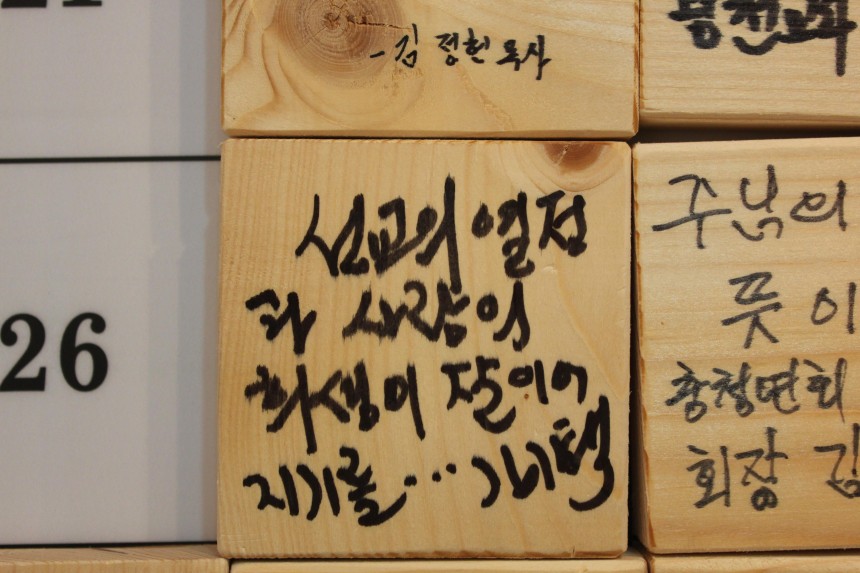 - 김 정헌 목사
26
선교의 열정
과 사랑의
희생이 잘이어
지기를...
주님의
뜻이
충청연회
회장 김